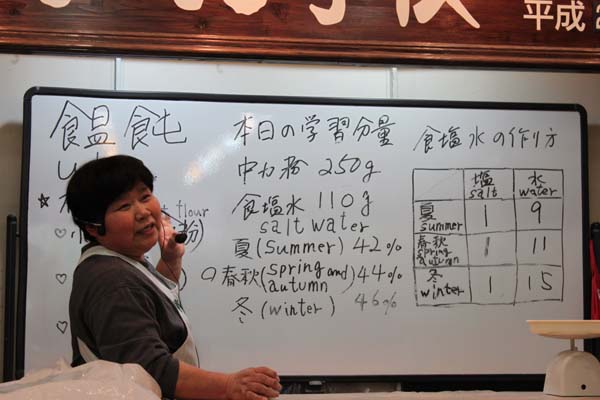 平成2
饂飩
flour
粉
本日の学習分量
中力粉 250g
食塩水 110g
salt water
夏(summer) 42%
春秋(spring and
autumn) 44%
冬(winter) 46%
食塩水の作り方
塩 水
salt water
夏
summer 1 9
春秋
spring
autumn 1 11
冬
winter 1 15